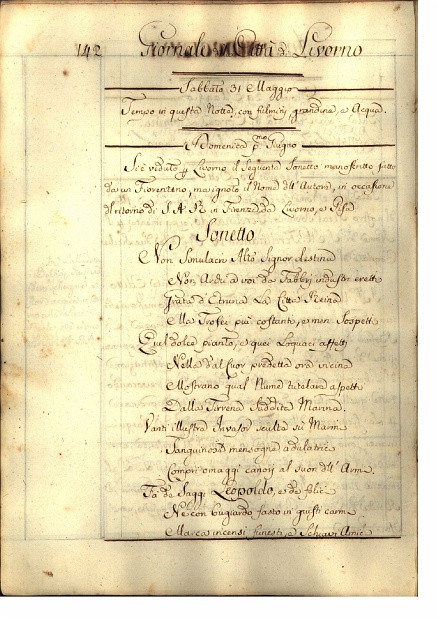 142 Giornale Città Livorno
Sabbato 31 Maggio
Tempo in questa Notte, con fulmini, grandine, e Acqua.
Domenica pmo Giugno
Si è veduto Livorno il seguente Sonetto manoscritto fatto
da un Fiorentino, ma ignoto il Nome dell' Autore, in occasione
del ritorno di S. A. R. in Firenze da Livorno, e Pisa
Sonetto
Non Simulacri Alto Signor destina
Non Archi a voi da Fabbri industri eretti
Grata d'Etruria La Città Reina
Ma Trofei più costanti, e men Sospetti
Quel dolce pianto, e quei Loquaci affetti
Nelle dal Cuor predette ora vicina
Mostrano qual Nume tutelare aspetti
Dalla Tirrena Suddita Marina.
Vanti illustre Invasor sculte su Marmi
Sanguinose menzogne adulatrici
Compri omaggi canori al suon dell' Armi.
Fa de Saggi Leopoldo, e de felici
Ne con bugiardo fasto in questi carmi
Merca incensi funesti, e Schiavi Amici